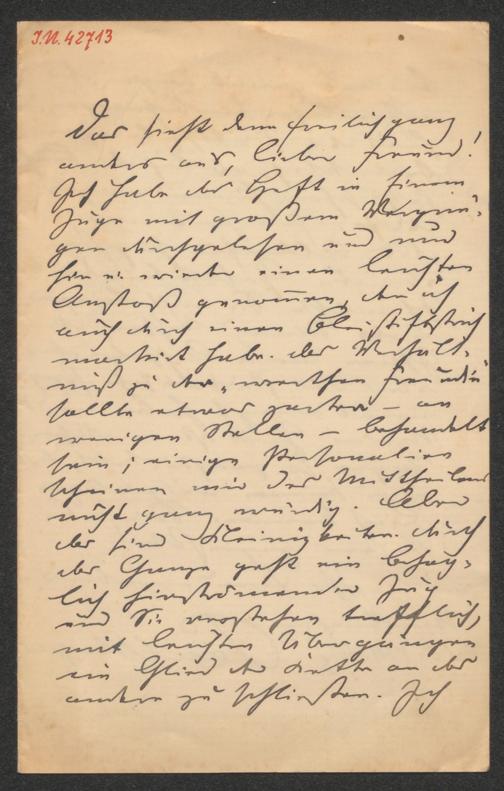 I.N. 42713
Das sieht denn freilich ganz
anders aus, lieber Freund!
Ich habe das Heft in einem
Zuge mit großem Vergnü-
gen durchgelesen und nur
hie u. wieder einen leichten
Anstoß genommen, den ich
auch durch einen Bleistiftstrich
markirt habe. Das Verhält-
niß zu der "werthen Freundin"
sollte etwas zarter – an
wenigen Stellen – behandelt
sein; einige Personalien
scheinen mir der Mittheilung
nicht ganz würdig. Aber
das sind Kleinigkeiten. Durch
das Ganze geht ein behag-
lich hinströmender Zug
und Sie verstehen trefflich,
mit leichten Übergängen
ein Glied der Kette an das
andere zu schließen. Ich